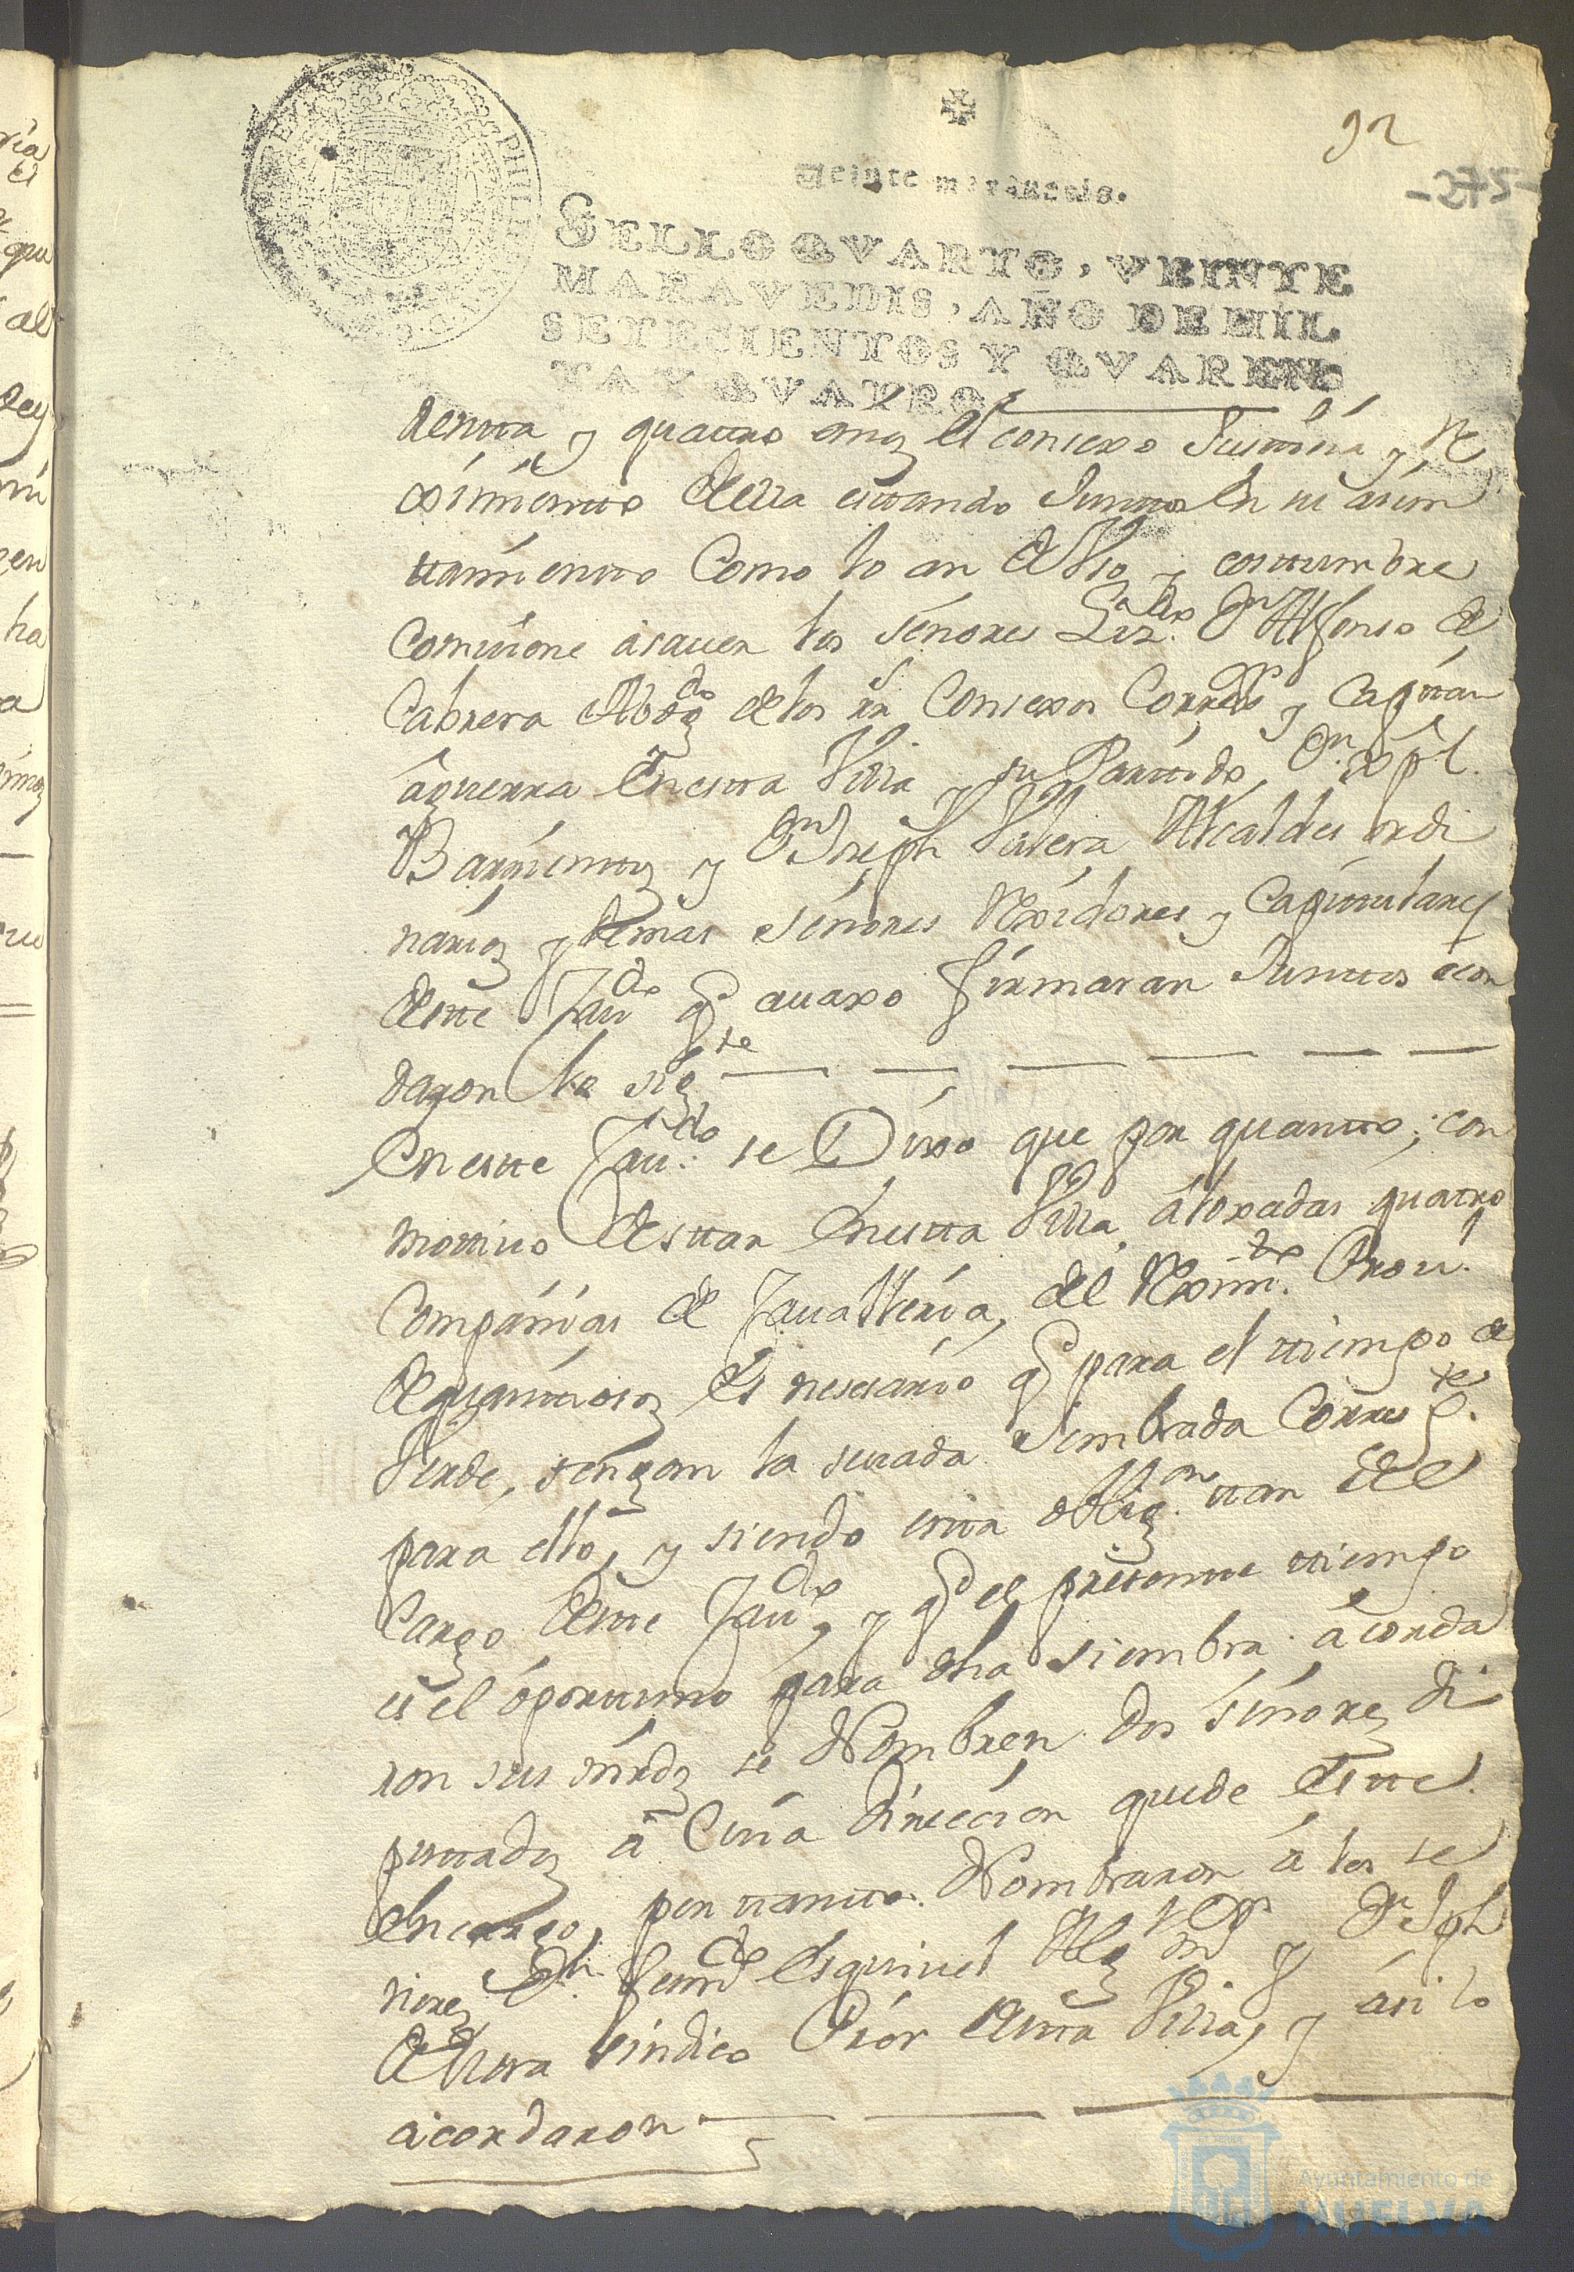 92
-275-
Veinte maravedis.
SELLO QVARTO, VEINTE
MARAVEDIS, AÑO DE MIL
SETECIENTOS Y QVAREN
TA Y QVATRO
renta y quattro años el consexo Justticia y Re
ximientto della esttando Junttos en su aiun
ttamientto Como lo an de Vso y costtumbre
combiene asauer los señores Lizdo. Dn Alfonso de
Cabrera Abogdo de los Rs Consexos Corregor y Capittan
aguerra en estta Villa y su Parttido, Dn. Xptl.
Barrienttos y Dn Joseph Valera Alcaldes ordi
narios y demas señores Rexidores y Capittulares
destte Caudo qe auaxo firmaran Junttos acor
daron lo sigte
En estte Caudo. se Dixo que por quantto, con
mottiuo de esttar en estta Villa, aloxadas quatro
Compañias de Cauallería, del Reximto. Prou.l
de quanttiosos es nesesario qe para el ttiempo de
Verde, tengan la seuada sembrada Correspte.
para ello, y siendo estta obligon. ttan del
Cargo destte Caudo, y qe el presentte ttiempo
es el oporttuno para dha siembra acorda
ron sus mrds se Nombren dos señores Di
puttados a Cuia direccion quede estte
encargo, por ttantto Nombraron a los se
ñores Dn. Ferndo Esquiuel Algl mor y Dn Jph
de Mora sindico Pror destta Villa, y asi lo
acordaron
Ayuntamiento de
HUELVA